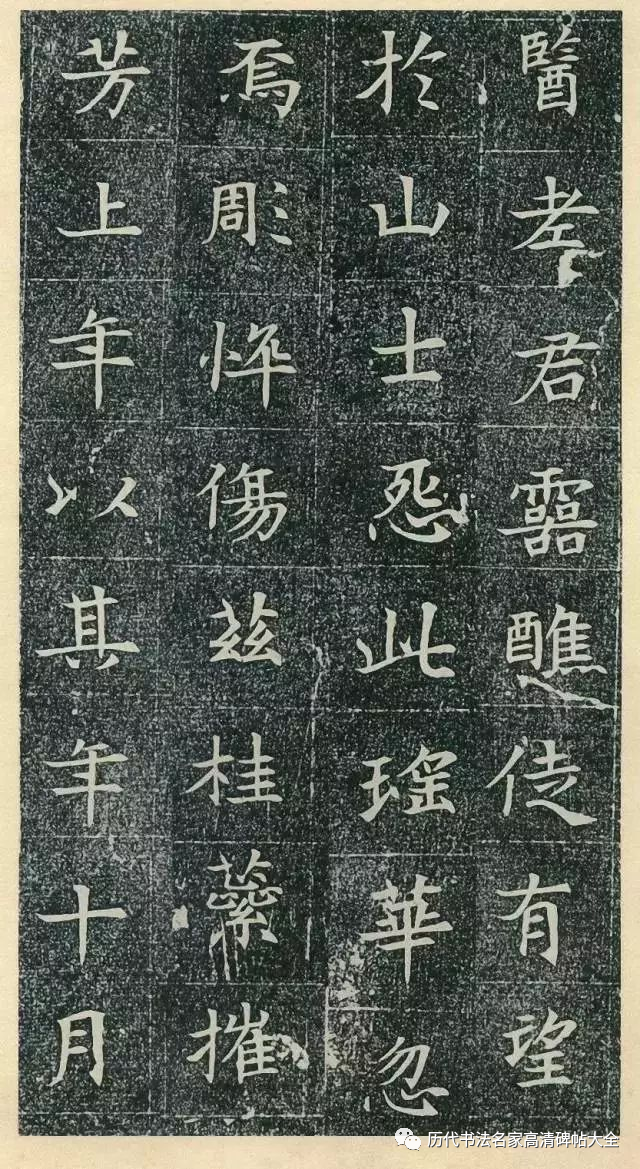 醫老君靈醮徒有望
於山士怨此瑤華忽
焉彫悴傷茲桂蘂摧
芳上年以其年十月
历代书法名家高清碑帖大全